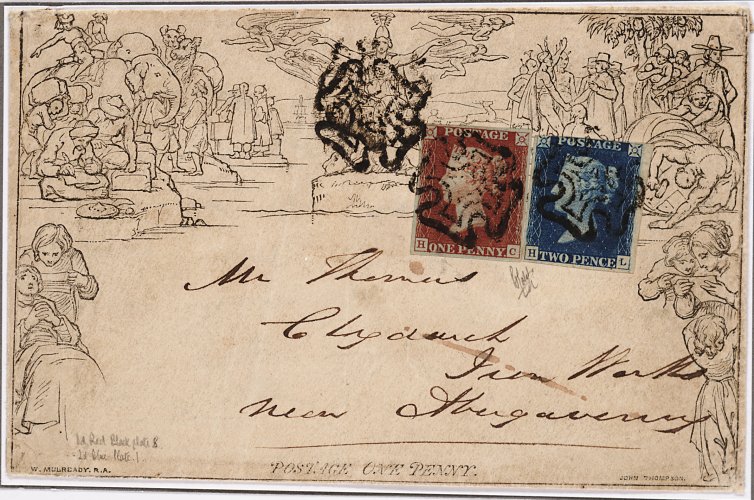 POSTAGE
H ONE PENNY C
POSTAGE
H TWO PENCE L
Mr Thomas
Clydarch
Iron Works
near Abugavenny
1d Red Black plate 8
2d blue Plate 1
POSTAGE ONE PENNY.
W. MULREADY, R.A.
JOHN THOMPSON.